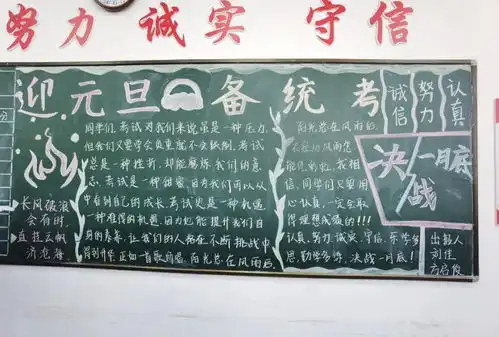 努力 诚实 守信
迎元旦 备统考
同学们，考试对我们来说虽是一种压力，
但我们又要学会负重就不会跌倒。考试
总是一种挫折，却能磨练我们的意
志。考试是一种甜蜜，因为我们可以从
中看到自己的成长。考试更是一种机遇，
一种难得的机遇，因为也能提升我们自
身的素养，让我们的人格在不断挑战中
阳光总在风雨后。
阳光总在风雨后，
信，同学们只要用
心认真，一定会取
得理想成绩的!!!
认真、努力、诚实、守信、乐学多
思，勤学多练，决战一月底！
长风破浪
会有时，
直挂云帆
济沧海。
诚信
努力
认真
决战
一月底
出报人
刘佳